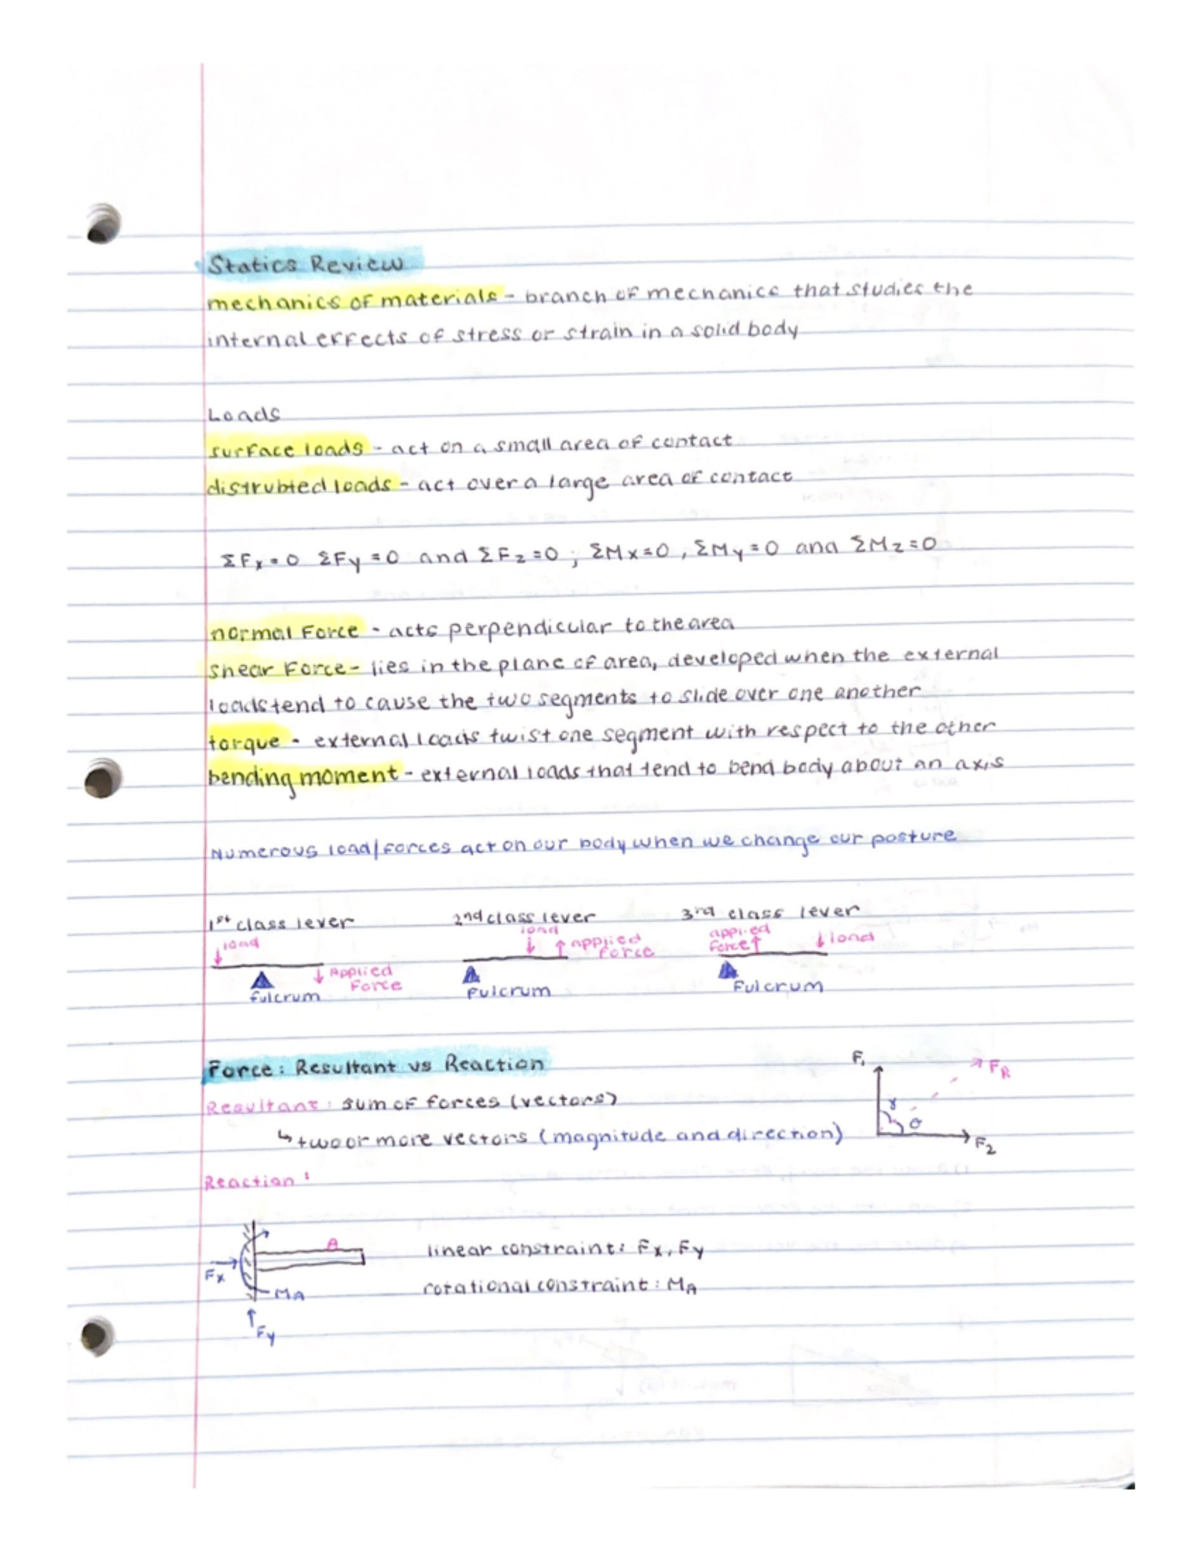 Statics Review
mechanics of materials - branch of mechanics that studies the
internal effects of stress or strain in a solid body
Loads
surface loads - act on a small area of contact
distrubted loads - act over a large area of contact
ΣFx=0 ΣFy=0 and ΣFz=0; ΣMx=0, ΣMy=0 and ΣMz=0
normal force - acts perpendicular to the area
shear force - lies in the plane of area, developed when the external
loads tend to cause the two segments to slide over one another
torque - external loads twist one segment with respect to the other
bending moment - external loads that tend to bend body about an axis
Numerous load/forces act on our body when we change our posture
1st class lever 2nd class lever 3rd class lever
load Applied Force fulcrum
load applied force fulcrum
applied force load fulcrum
Force: Resultant vs Reaction
Resultant: sum of forces (vectors)
↳ two or more vectors (magnitude and direction)
F1 FR γ θ F2
Reaction:
A
linear constraint: Fx, Fy
Fx
MA
rotational constraint: MA
Fy